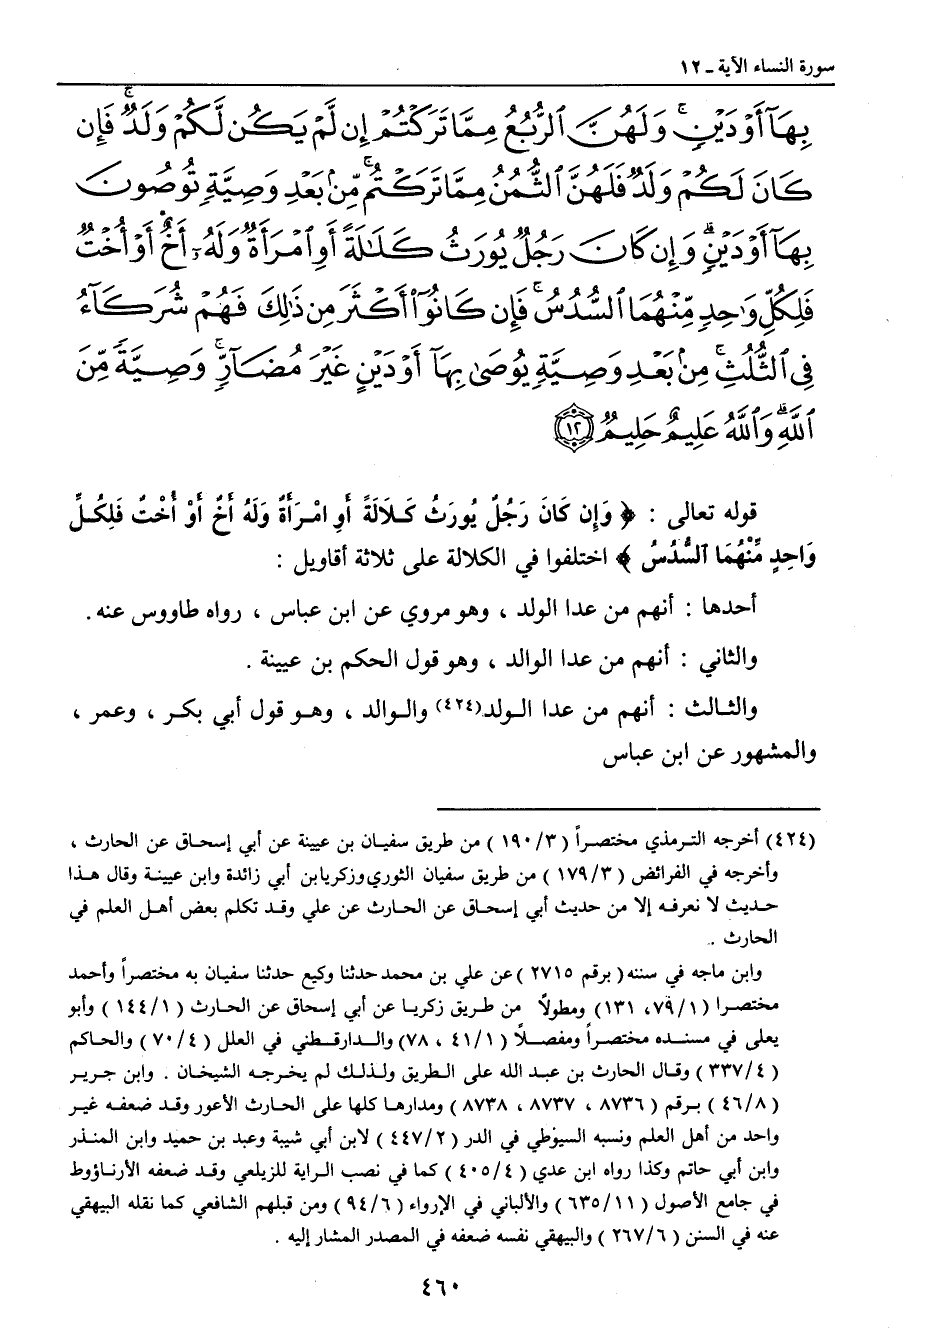 سورة النساء الآية ـ ١٢
بِهَآ أَوْ دَيْنٍ ۚ وَلَهُنَّ ٱلرُّبُعُ مِمَّا تَرَكْتُمْ إِن لَّمْ يَكُن لَّكُمْ وَلَدٌ ۚ فَإِن
كَانَ لَكُمْ وَلَدٌ فَلَهُنَّ ٱلثُّمُنُ مِمَّا تَرَكْتُم ۚ مِّنۢ بَعْدِ وَصِيَّةٍ تُوصُونَ
بِهَآ أَوْ دَيْنٍ ۗ وَإِن كَانَ رَجُلٌ يُورَثُ كَلَٰلَةً أَوِ ٱمْرَأَةٌ وَلَهُۥٓ أَخٌ أَوْ أُخْتٌ
فَلِكُلِّ وَٰحِدٍ مِّنْهُمَا ٱلسُّدُسُ ۚ فَإِن كَانُوٓا۟ أَكْثَرَ مِن ذَٰلِكَ فَهُمْ شُرَكَآءُ
فِى ٱلثُّلُثِ ۚ مِنۢ بَعْدِ وَصِيَّةٍ يُوصَىٰ بِهَآ أَوْ دَيْنٍ غَيْرَ مُضَآرٍّ ۚ وَصِيَّةً مِّنَ
ٱللَّهِ ۗ وَٱللَّهُ عَلِيمٌ حَلِيمٌ ١٢
قوله تعالى : ﴿ وَإِن كَانَ رَجُلٌ يُورَثُ كَلَالَةً أَوِ امْرَأَةٌ وَلَهُ أَخٌ أَوْ أُخْتٌ فَلِكُلِّ
وَاحِدٍ مِّنْهُمَا ٱلسُّدُسُ ﴾ اختلفوا في الكلالة على ثلاثة أقاويل :
أحدها : أنهم من عدا الولد ، وهو مروي عن ابن عباس ، رواه طاووس عنه .
والثاني : أنهم من عدا الوالد ، وهو قول الحكم بن عيينة .
والثالث : أنهم من عدا الولد(٤٢٤) والوالد ، وهو قول أبي بكر ، وعمر ،
والمشهور عن ابن عباس
(٤٢٤) أخرجه الترمذي مختصراً ( ٣/ ١٩٠ ) من طريق سفيان بن عيينة عن أبي إسحاق عن الحارث ،
وأخرجه في الفرائض ( ٣/ ١٧٩ ) من طريق سفيان الثوري وزكريا بن أبي زائدة وابن عيينة وقال هذا
حديث لا نعرفه إلا من حديث أبي إسحاق عن الحارث عن علي وقد تكلم بعض أهل العلم في
الحارث .
وابن ماجه في سننه ( برقم ٢٧١٥ ) عن علي بن محمد حدثنا وكيع حدثنا سفيان به مختصراً وأحمد
مختصرا ( ١/ ٧٩، ١٣١) ومطولاً من طريق زكريا عن أبي إسحاق عن الحارث ( ١/ ١٤٤ ) وأبو
يعلى في مسنده مختصراً ومفصلاً ( ١/ ٤١ ، ٧٨) والدارقطني في العلل ( ٤/ ٧٠ ) والحاكم
( ٤/ ٣٣٧ ) وقال الحارث بن عبد الله على الطريق ولذلك لم يخرجه الشيخان . وابن جرير
( ٨/ ٤٦ ) برقم ( ٨٧٣٦ ، ٨٧٣٧ ، ٨٧٣٨ ) ومدارها كلها على الحارث الأعور وقد ضعفه غير
واحد من أهل العلم ونسبه السيوطي في الدر ( ٢/ ٤٤٧ ) لابن أبي شيبة وعبد بن حميد وابن المنذر
وابن أبي حاتم وكذا رواه ابن عدي ( ٤/ ٤٠٥ ) كما في نصب الراية للزيلعي وقد ضعفه الأرناؤوط
في جامع الأصول ( ١١/ ٦٣٥ ) والألباني في الإرواء ( ٦/ ٩٤ ) ومن قبلهم الشافعي كما نقله البيهقي
عنه في السنن ( ٦/ ٢٦٧ ) والبيهقي نفسه ضعفه في المصدر المشار إليه .
٤٦٠